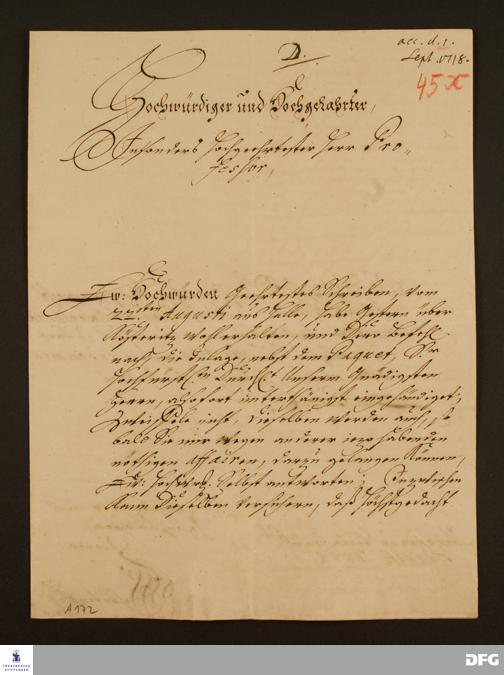 acc. d. 1.
Sept. 1718.
D.
45 x
Hochwürdiger und Hochgelahrter,
Insonders Hochgeehrtester Herr Pro-
fessor,
Ew: Hochwürden Geehrtestes Schreiben, vom
22sten Augusti aus Halle, habe Gestern über
Köstritz wohl erhalten, und Dero Befehl
nach die Inlage, nebst dem Paquet, Sr
Hochfürstl. Durchl. Unserm Gnädigsten
Herrn, alsofort unterthänigst eingehändiget,
Zweiffele nicht, Dieselben werden auch, so
bald Sie nur wegen anderer iezo habenden
nöthigen Affairen, darzu gelangen können,
Ew: Hochw. selbst antworten; Inzwischen
kann Dieselben versichern, daß Höchstgedacht
A 172
FRANCKESCHE
STIFTUNGEN
DFG